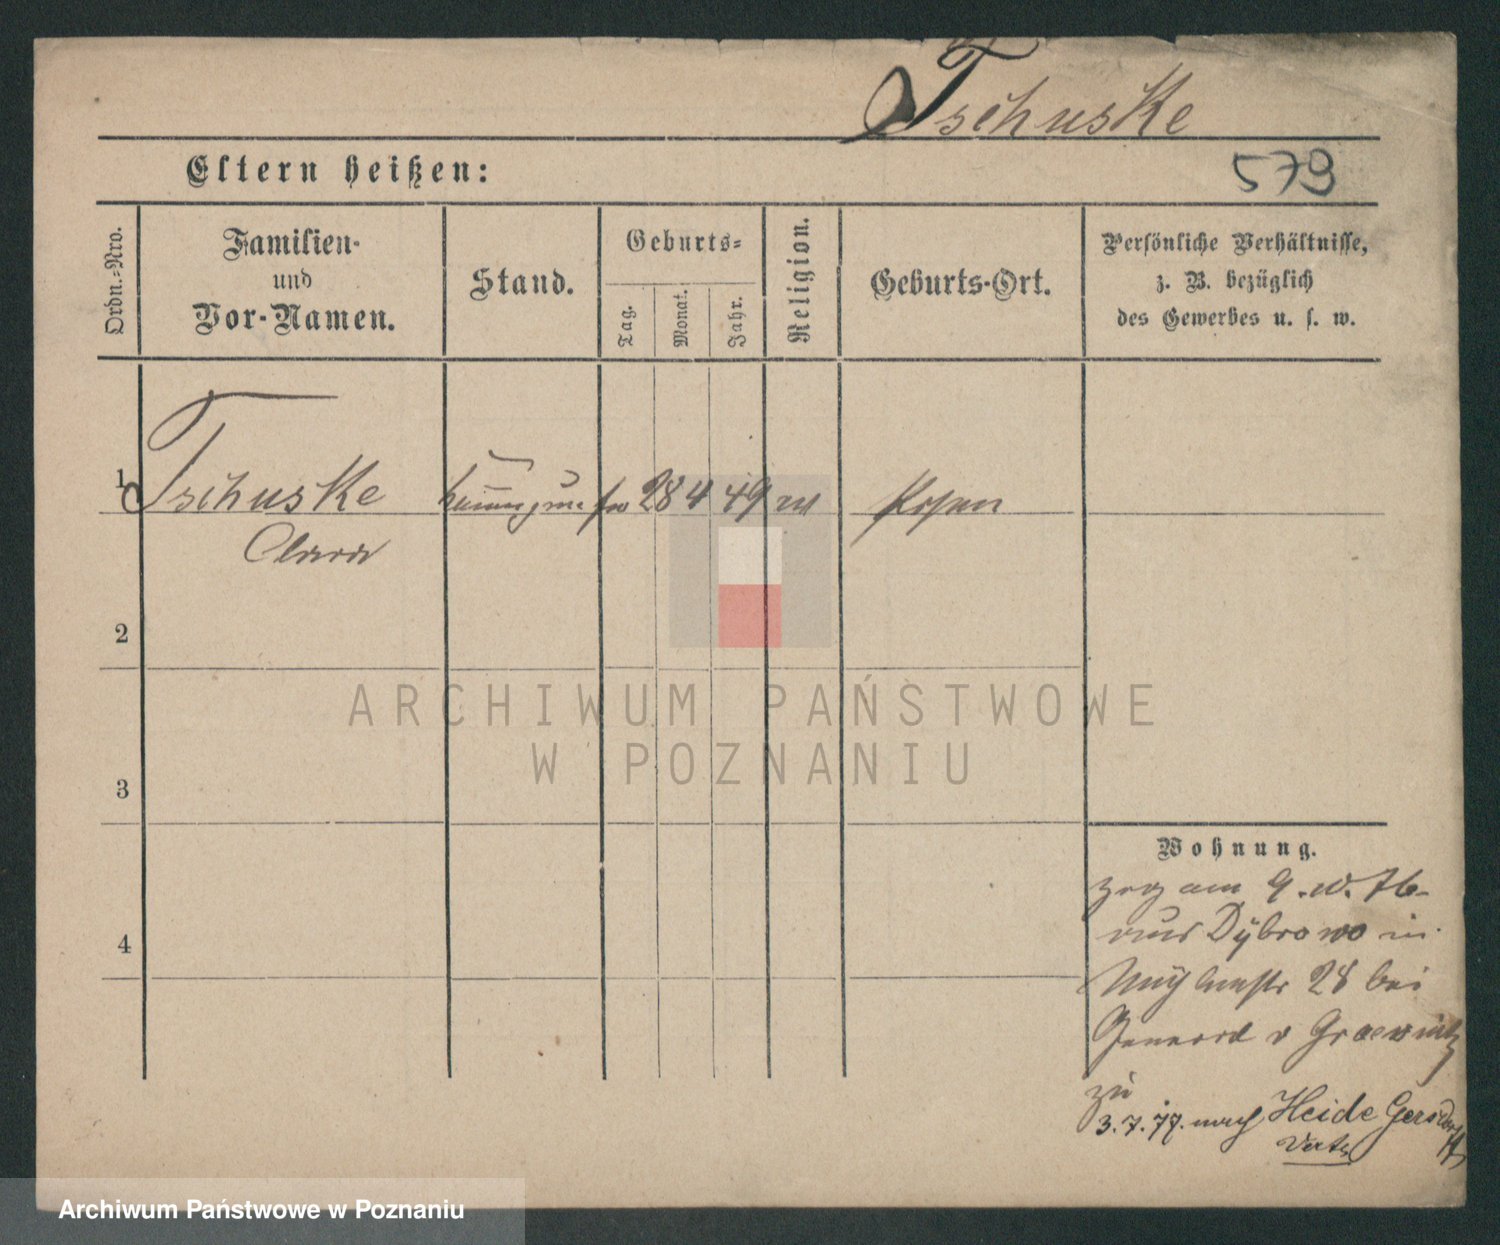 Tschuske
Eltern heißen:
579
Ordn.-Nro.
Familien-
und
Vor-Namen.
Stand.
Geburts-
Tag.
Monat.
Jahr.
Religion.
Geburts-Ort.
Persönliche Verhältnisse,
z. B. bezüglich
des Gewerbes u. s. w.
1 Tschuske 28 4 49 Posen
Clara
2
ARCHIWUM PAŃSTWOWE
W POZNANIU
3
Wohnung.
zog am 9. 76
aus Dybrowo in
28 bei
General v
4
zu
3.7.77. nach Heide Gersdorf
Archiwum Państwowe w Poznaniu